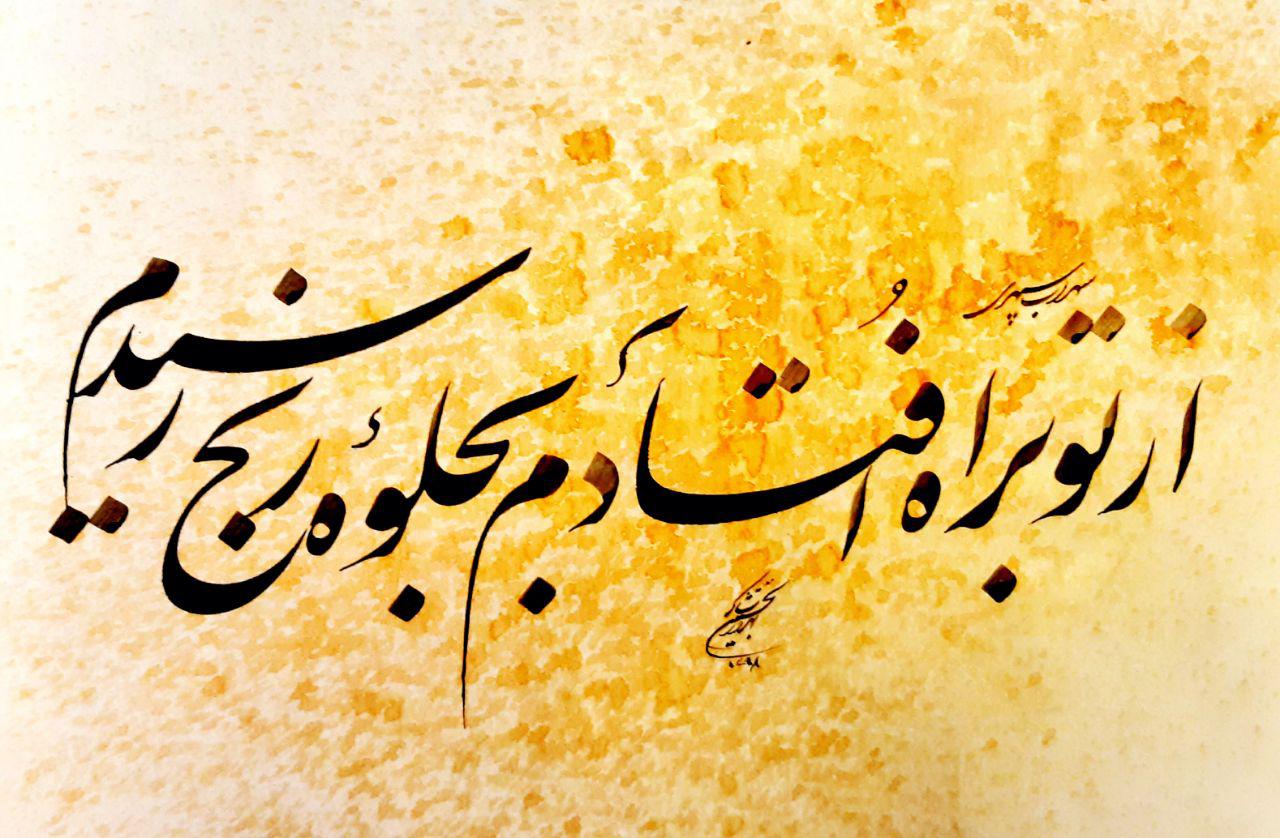 سهراب سپهری
از تو براه اُفتادم بجلوهٔ رنج رسیدم